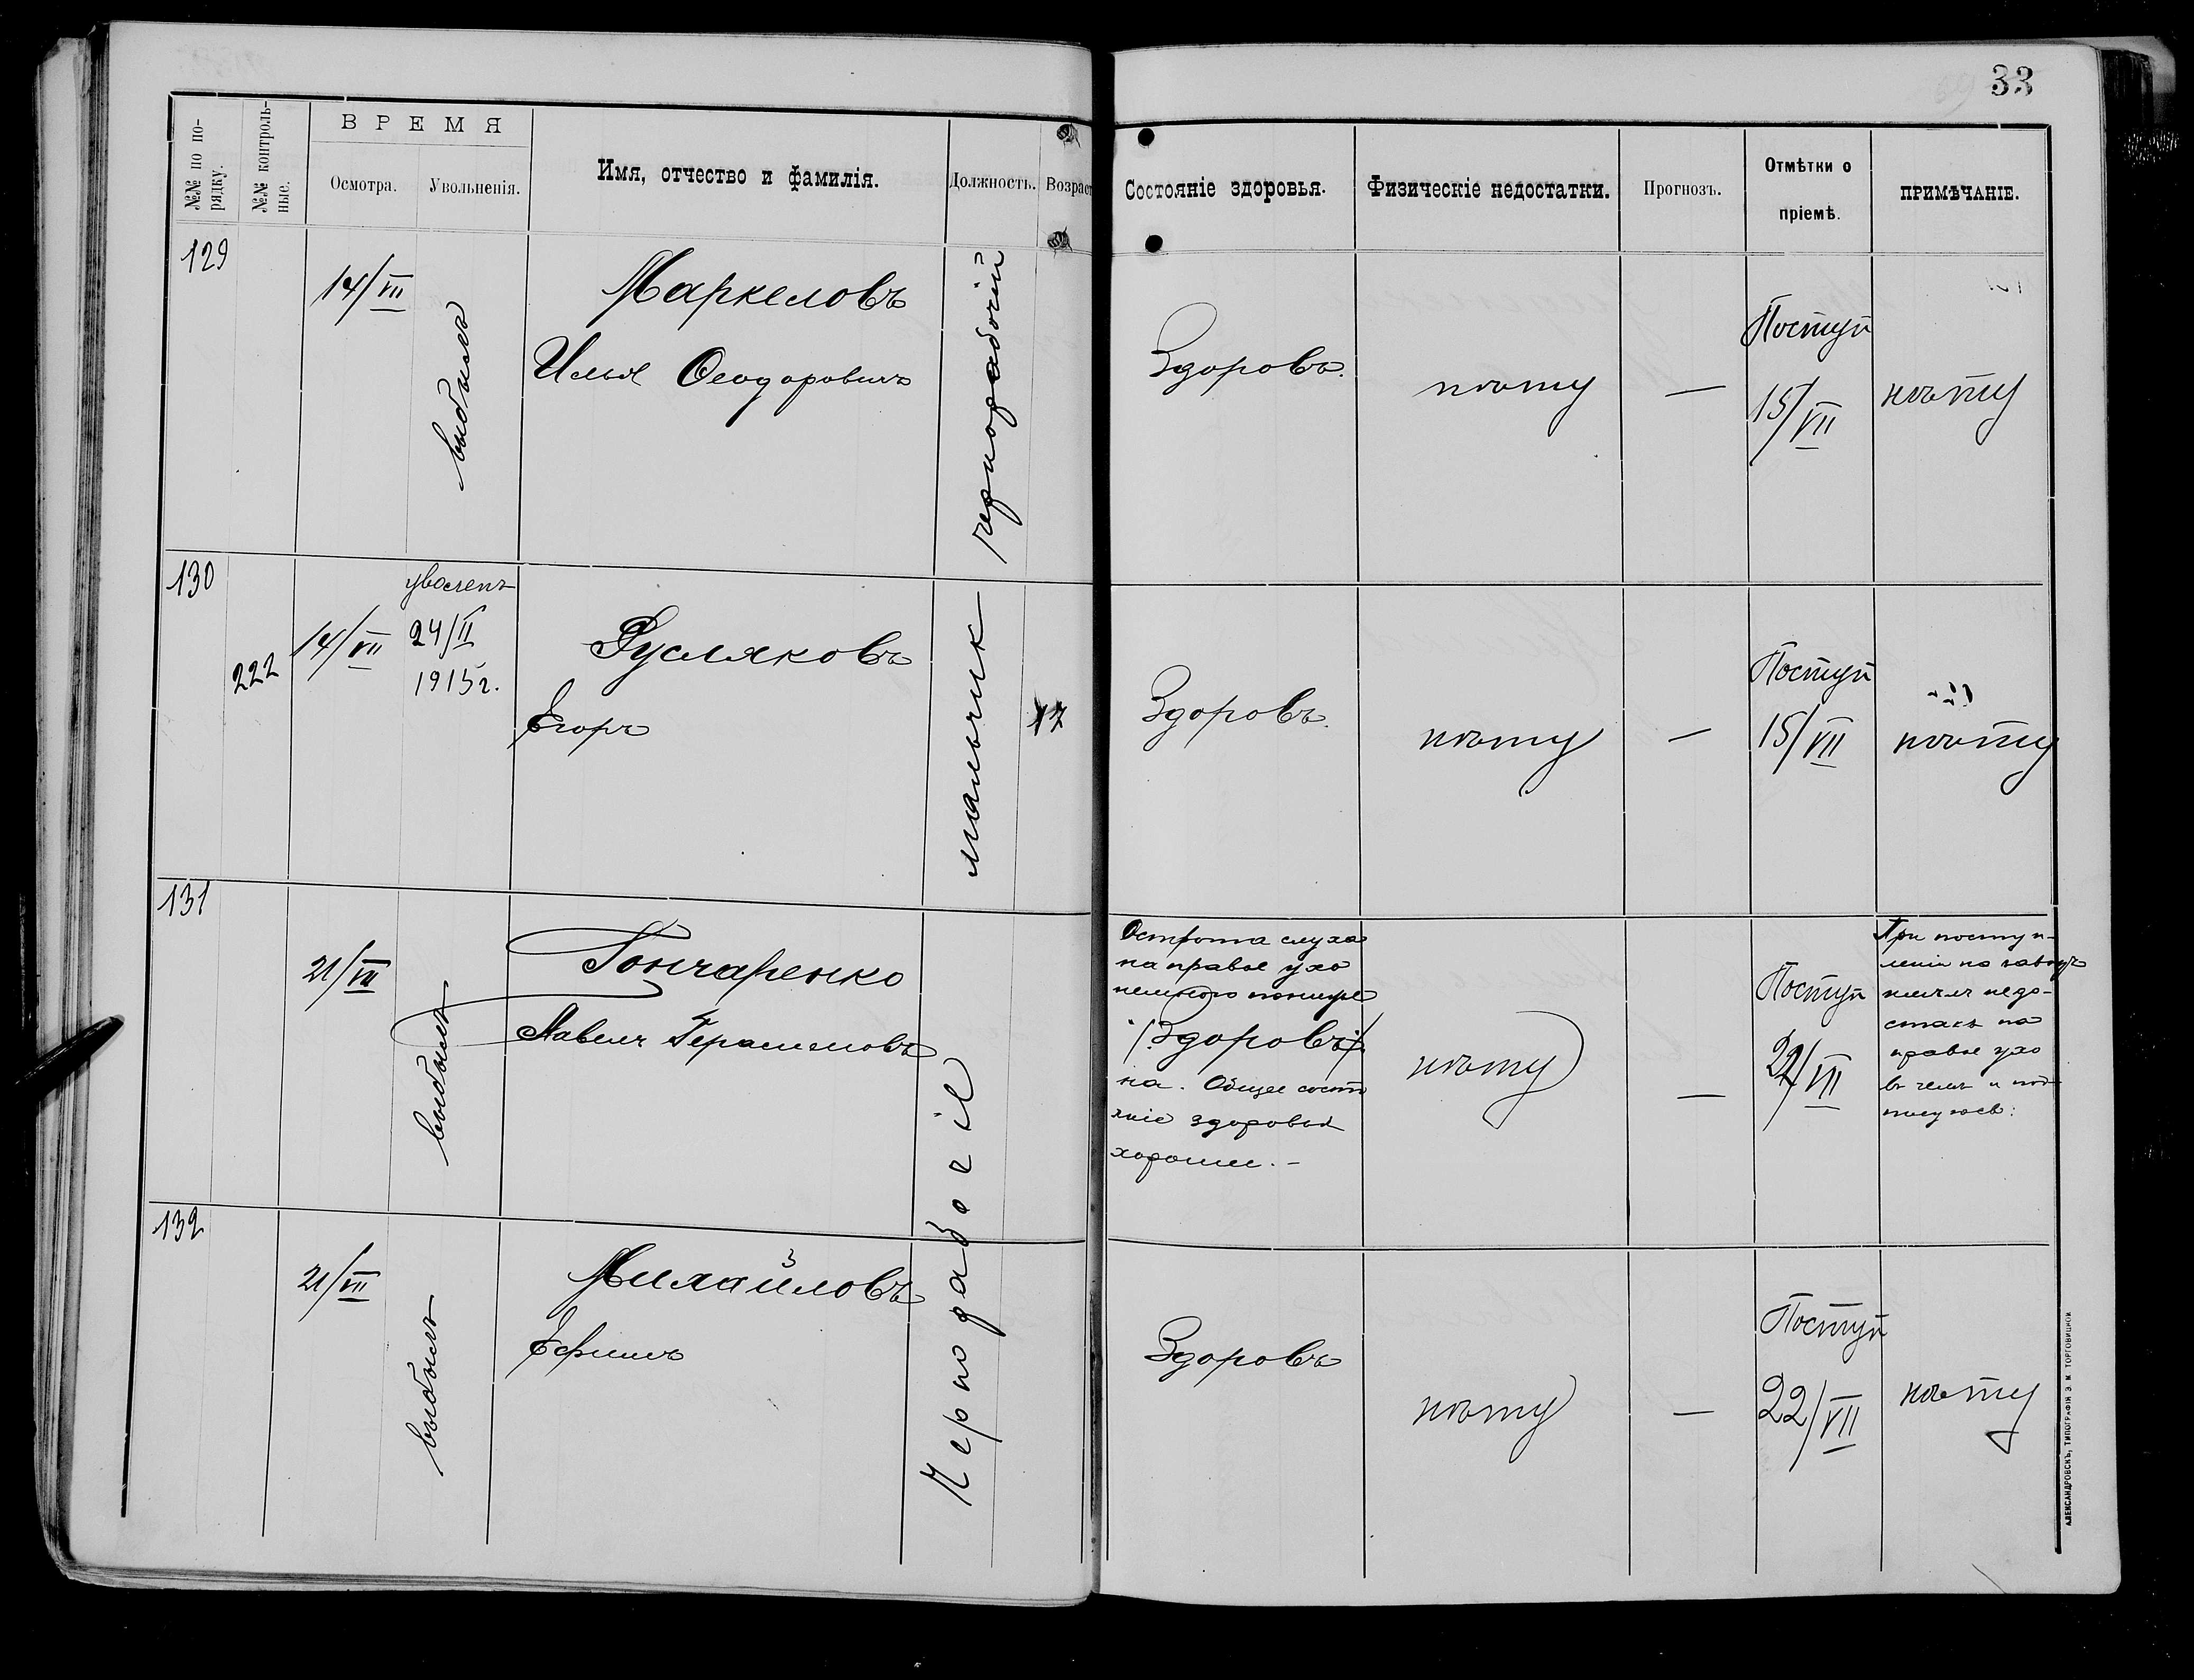 33
№№ по по-
рядку.
№№ контроль-
ные.
ВРЕМЯ
Осмотра.
Увольненія.
Имя, отчество и фамилія.
Должность.
Возраст
Состояніе здоровья.
Физическіе недостатки.
Прогнозъ.
Отмѣтки о
пріемѣ.
ПРИМѢЧАНІЕ.
129
14/VII
выбылъ
Маркеловъ
Илья Ѳеодоровичъ
чернорабочій
Здоровъ.
нѣту
—
Поступ
15/VII
нѣту
130
222
14/VII
уволенъ
24/II
1915 г.
Русляковъ
Егоръ
мальчик
17
Здоровъ.
нѣту
—
Поступ
15/VII
нѣту
131
21/VII
выбылъ
Гончаренко
Павелъ Герасимовъ
Чернорабочій
Острота слуха
на правое ухо
немного пониже
/Здоровъ/
на. Общее состо
яніе здоровья
хорошее. –
нѣту
—
Поступ
22/VII
При поступ-
леніи на заводъ
имелъ недо-
статк на
правое ухо
въ чемъ и под-
132
21/VII
выбылъ
Михайловъ
Ефимъ
Здоровъ
нѣту
—
Поступ
22/VII
нѣту
АЛЕКСАНДРОВСКЪ, ТИПОГРАФІЯ Э. М. ТОРГОВИЦКОЙ